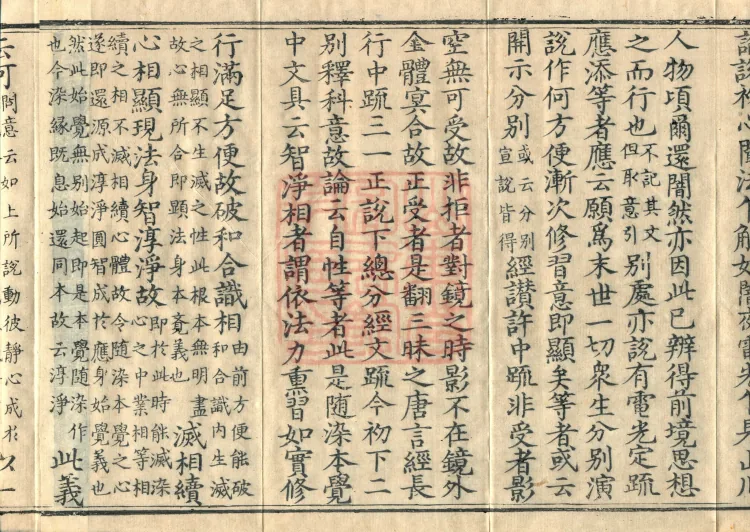 人物頃爾還闇然亦因此已辨得前境思想
之而行也不記其文但取意引別處亦說有電光定疏
應添等者應云願爲末世一切衆生分別演
說作何方便漸次修習意即顯矣等者或云
開示分別或云分別宣說皆得經讃許中疏非受者影
空無可受故非拒者對鏡之時影不在鏡外
金體冥合故正受者是翻三昧之唐言經長
行中疏三一正說下總分經文疏今初下二
別釋科意故論云自性等者此是随染本覺
中文具云智淨相者謂依法力熏習如實修
行滿足方便故破和合識相由前方便能破和合識内生滅
之相顯不生滅之性此根本無明盡故心無所合即顯法身本竟義也滅相續
心相顯現法身智淳淨故即於此時能滅染心之中業相等相
續之相不滅相續心體故令随染本覺之心遂即還源成淳淨圓智成於應身始覺義也
然此始覺無別始起即是本覺随染作也今染縁既息始還同本故云淳淨此義
意云如上所說動彼靜心成